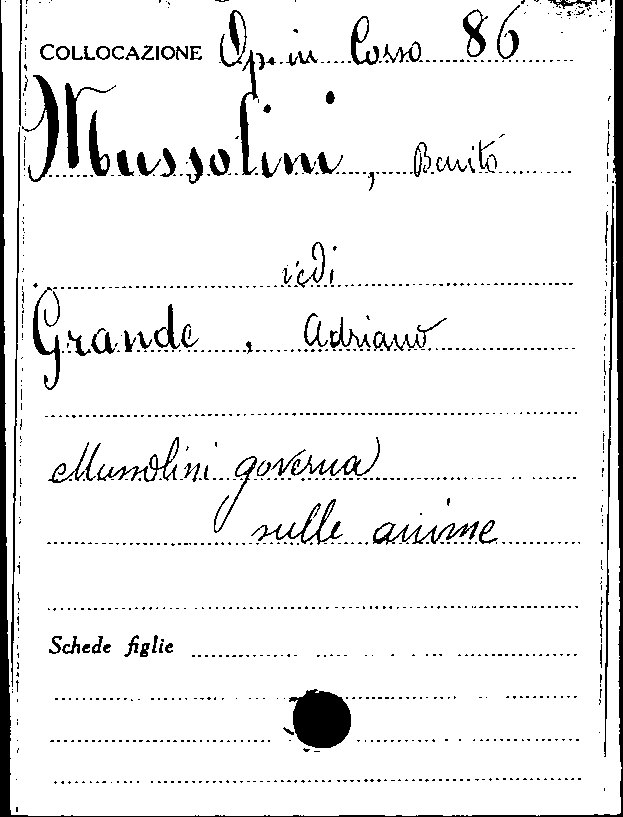 COLLOCAZIONE Op. in Corso 86
Mussolini, Benito
vedi
Grande, Adriano
Mussolini governa
sulle anime
Schede figlie